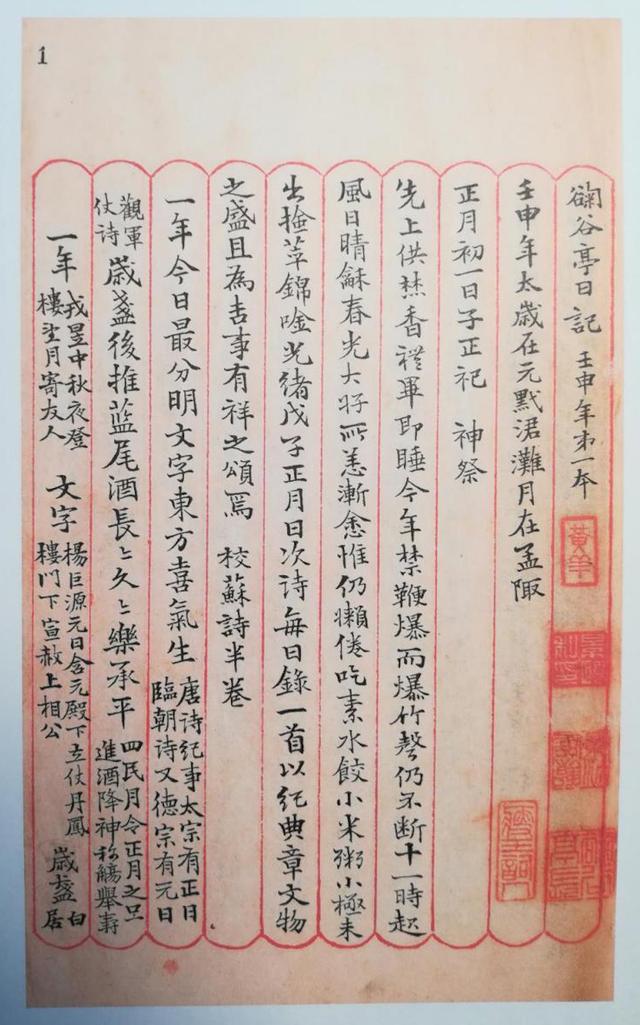 1
鞠谷亭日記 壬申年第一本
黃羊
壬申年太歲在元默涒灘月在孟陬
正月初一日子正祀 神祭
先上供焚香禮畢即睡今年禁鞭爆而爆竹聲仍不斷十一時起
風日晴龢春光大好所恙漸愈惟仍懶倦吃素水餃小米粥小極未
出撿莘錦唫光緒戊子正月日次詩每日錄一首以紀典章文物
之盛且為吉事有祥之頌焉 校蘇詩半卷
一年今日最分明文字東方喜氣生 唐詩紀事太宗有正日
臨朝詩又德宗有元日
觀軍
仗詩 歲盞後推藍尾酒長〻久〻樂承平 四民月令正月之旦
進酒降神称觴舉壽
一年 戎昱中秋夜登
樓望月寄友人 文字 楊巨源元日含元殿下立仗丹鳳
樓門下宣赦上相公 歲盞 白
居